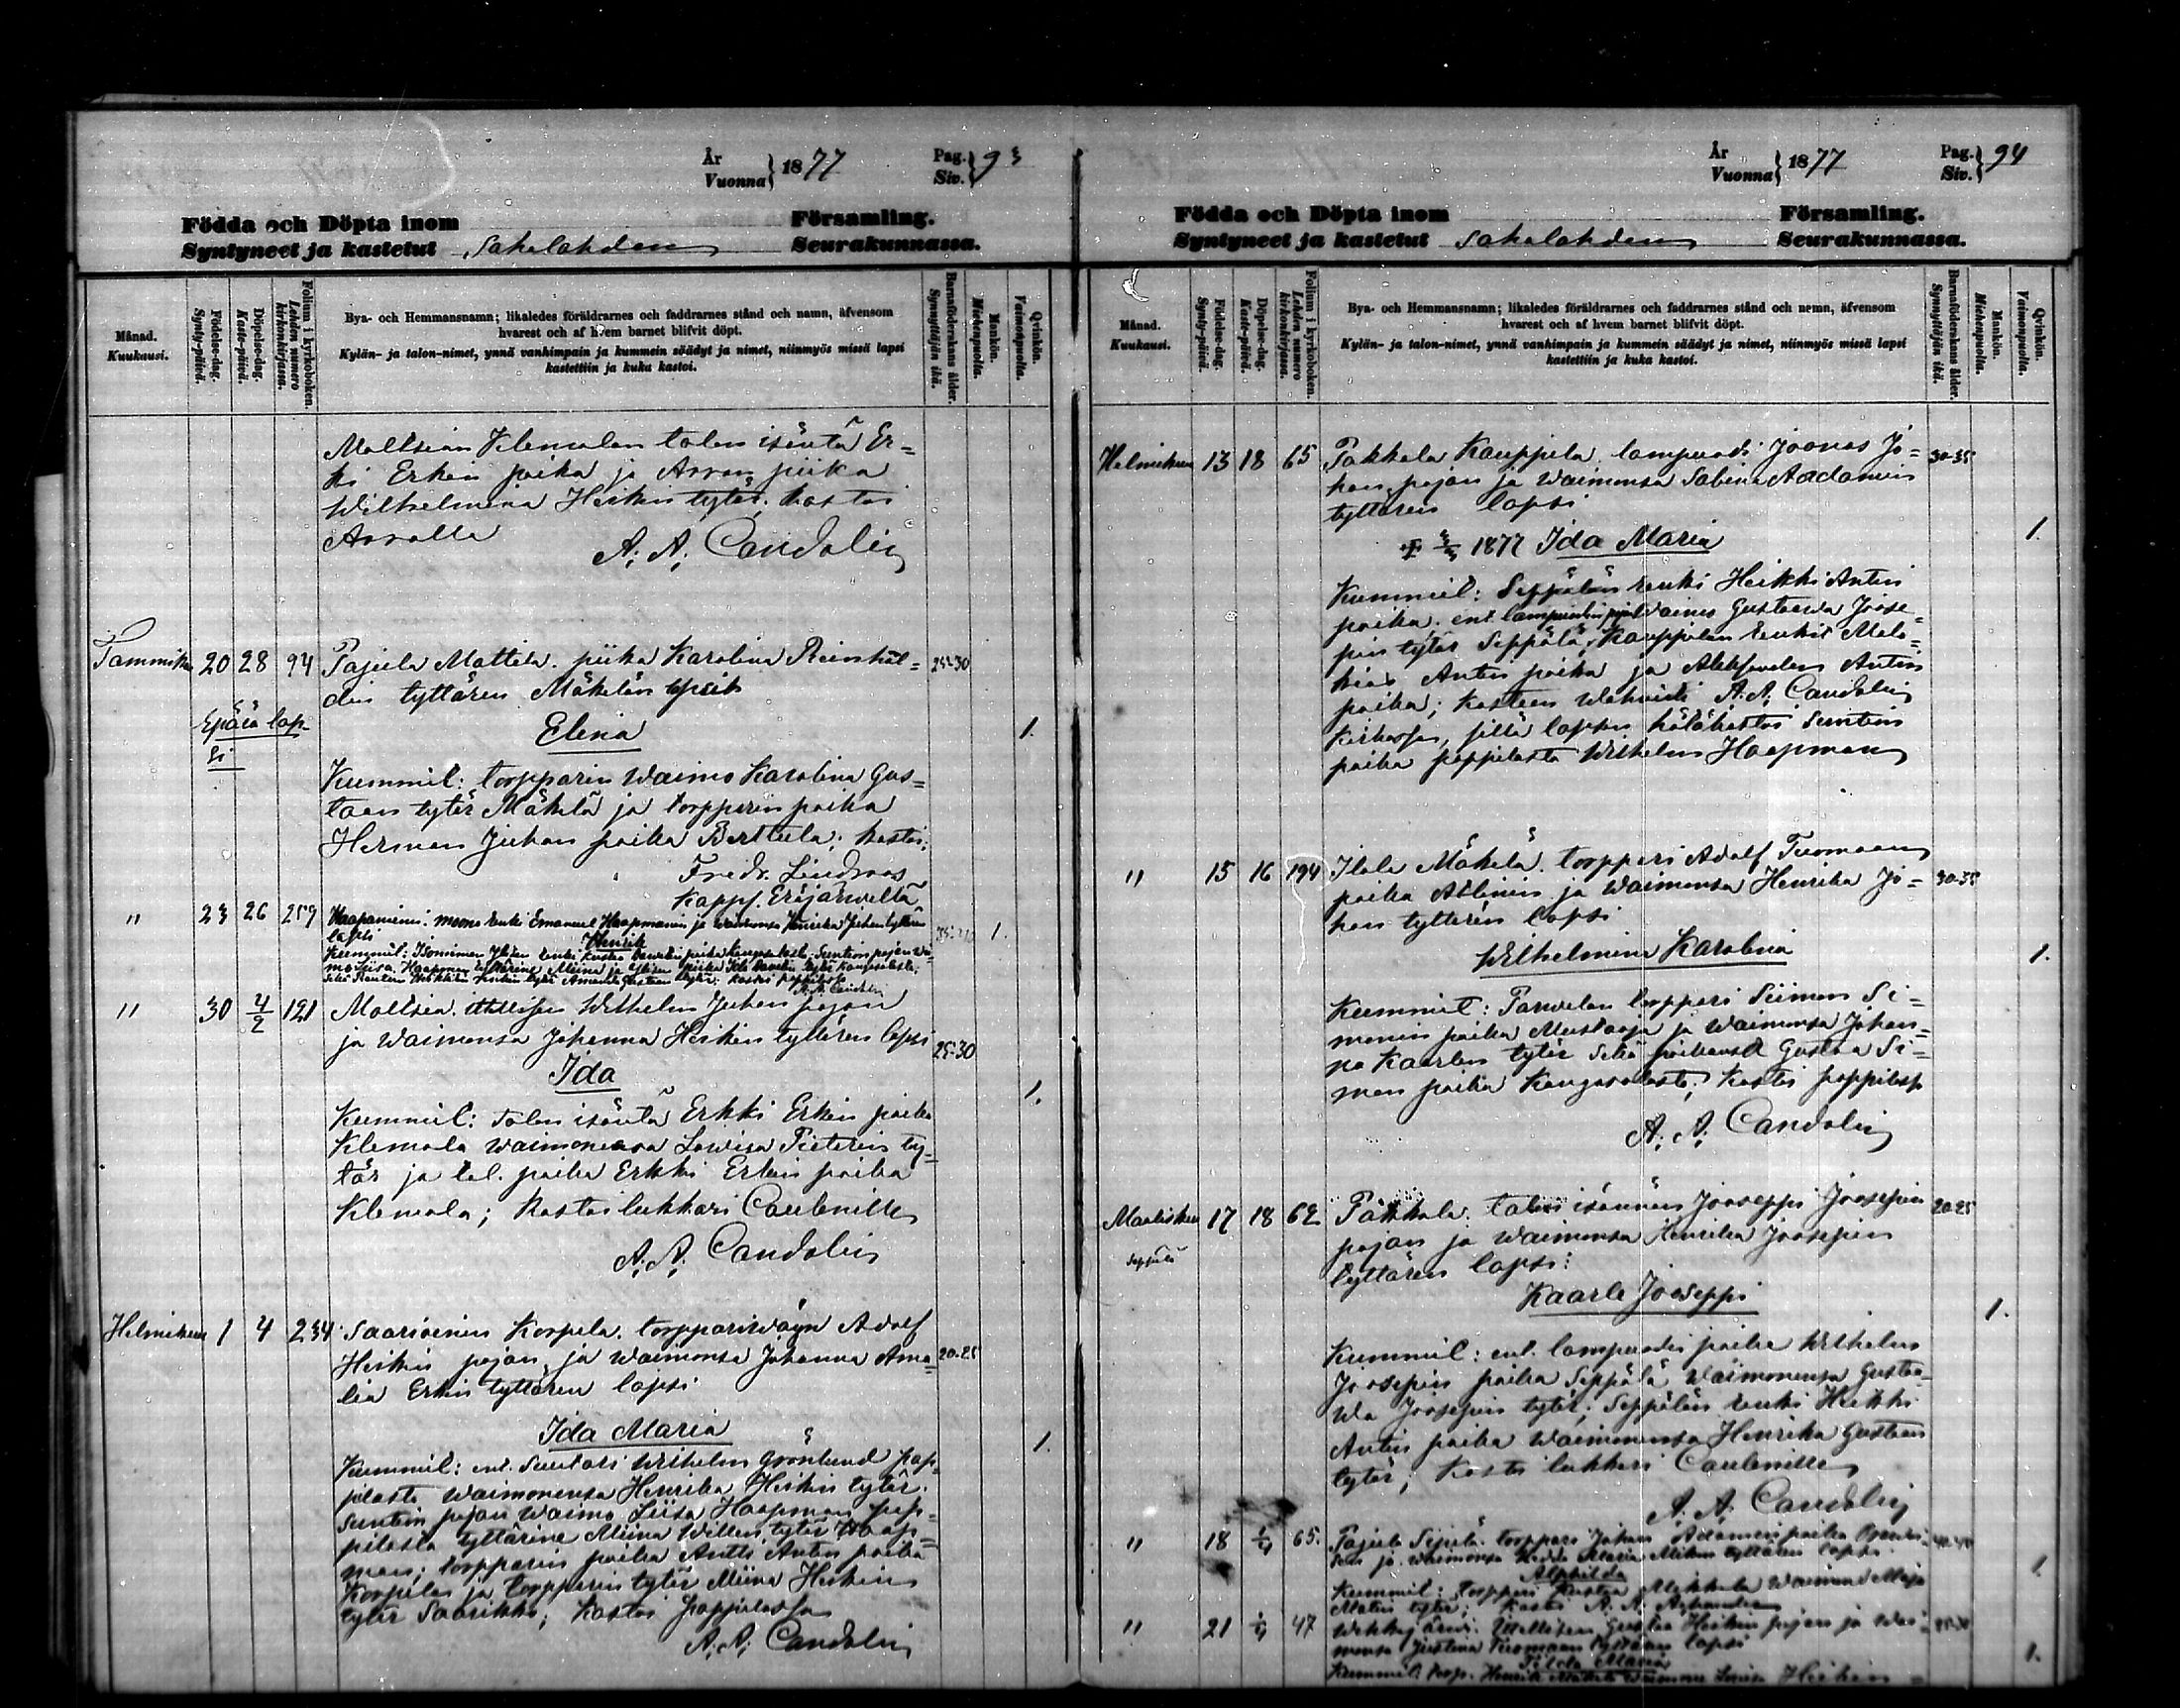 År
Vuonna } 1877
Pag.
Siv. } 93
Födda och Döpta inom Församling.
Syntyneet ja kastetut Sahalahden Seurakunnassa.
Månad.
Kuukausi.
Födelse-dag.
Synty-päivä.
Döpelse-dag.
Kaste-päivä.
Folium i kyrkoboken.
Lehden numero
kirkonkirjassa.
Bya- och Hemmansnamn; likaledes föräldrarnes och faddrarnes stånd och namn, äfvensom
hvarest och af hvem barnet blifvit döpt.
Kylän- ja talon-nimet, ynnä vanhimpain ja kummein säädyt ja nimet, niinmyös missä lapsi
kastettiin ja kuka kastoi.
Barnaföderskans ålder.
Synnyttäjän ikä.
Mankön.
Miehenpuolta.
Qvinkön.
Vaimonpuolta.
Moltsian Klemolan talon isäntä Er=
ki Erkin poika ja Arvon piika
Wilhelmina Heikin tytär; kastoi
Arvolla
A. A. Candolin
Tammikuu 20 28 94 Pajula Mattila. piika Karolina Reinhol= 25-30
din tyttären Mäkelän
Epäiä lap-
si
Elina 1.
Kummit: torpparin Waimo Karolina Gus=
taan tytär Mäkelä ja torpparin poika
Herman Juhan poika Berttula; kastoi;
Fredr. Lindroos
Kappl. Eräjärveltä
" 23 26 259 Haapaniemi. renki Emanuel Haapmanin ja waimonsa Henrika Juhan tyttären 1.
lapsi Henrik
" 30 4/2 121 Moltsia. Wilhelm Juhan pojan
ja Waimonsa Johanna Heikin tyttären lapsi 25-30
Ida 1.
Kummit: talon isäntä Erkki Erkin poika
Klemola waimonensa Lowisa Pieterin ty=
tär ja tal. poika Erkki Erkin poika
Klemola; Kastoi lukkari Caulenille
A. A. Candolin
Helmikuu 1 4 234 Saarioinen Korpela. torpparivävyn Adolf
Heikin pojan ja Waimonsa Johanna Ama= 20-25
lia Erkin tyttären lapsi
Ida Maria 1.
Kummit: ent. Suntari Wilhelm Grönlund pap=
pilasta waimonensa Henrika Heikin tytär.
Suntion pojan Waimo Liisa Haapman pap=
pilasta tyttärine Miina Willen tytär Haap=
man; torpparin poika Antti Antin poika
Korpelas ja torpparin tytär Miina Heikin
tytär Saarikko; Kastoi pappilassa
A. A. Candolin
År
Vuonna } 1877
Pag.
Siv. } 94
Födda och Döpta inom Församling.
Syntyneet ja kastetut Sahalahden Seurakunnassa.
Månad.
Kuukausi.
Födelse-dag.
Synty-päivä.
Döpelse-dag.
Kaste-päivä.
Folium i kyrkoboken.
Lehden numero
kirkonkirjassa.
Bya- och Hemmansnamn; likaledes föräldrarnes och faddrarnes stånd och nemn, äfvensom
hvarest och af hvem barnet blifvit döpt.
Kylän- ja talon-nimet, ynnä vanhimpain ja kummein säädyt ja nimet, niinmyös missä lapsi
kastettiin ja kuka kastoi.
Barnaföderskans ålder.
Synnyttäjän ikä.
Mankön.
Miehenpuolta.
Qvinkön.
Vaimonpuolta.
Helmikuu 13 18 65 Pakkala Kauppila. lampuodi Joonas Jo= 30-35
han pojan ja Waimonsa Sabina Aadamin
tyttären lapsi
1877 Ida Maria 1.
Kummit: Seppälän renki Heikki Antin
poika. ent. lampuodin Waimo Gustaava Joose=
pin tytär Seppälä, Kauppilan renkit Mala=
kias Antin poika ja Aleksander Antin
poika; Kasteen Wahvisti A. A. Candolin
Kirkossa, sillä lapsen hätäkastoi Suntion
poika pappilasta Wilhelm Haapman
" 15 16 194 Ilola Mäkelä. torppari Adolf Tuomaan 30-35
poika ja Waimonsa Henrika Jo=
han tyttären lapsi
Wilhelmina Karolina 1.
Kummit: torppari Siimon Si=
monin poika Mustaoja ja Waimonsa Johan=
na Kaarlen tytär Sekä Gustaa Si=
mon poika Kangasalasta; Kastoi pappilassa
A. A. Candolin
Maaliskuu 17 18 62 Pakkala. talon isännän Jooseppi Joosepin 20-25
Seppälä
pojan ja Waimonsa Henrika Joosepin
tyttären lapsi:
Kaarle Jooseppi 1.
Kummit: ent. lampuodin poika Wilhelm
Joosepin poika Seppälä Waimonensa Gustaa=
wa Joosepin tytär; Seppälän renki Heikki
Antin poika Waimonensa Henrika Gustaan
tytär; Kastoi lukkari Caulenille
A. A. Candolin
" 18 65. Pajula torppari Johan Adamin poika
ja waimonsa Maria tyttären lapsi
Alphilda 1.
Kummit: torppari Kustaa Mikkola Waimo Maja
Matin tytär; Kastoi A. A.
" 21 47 Gustaa Heikin pojan ja Wai=
monsa Justina Tuomaan tyttären lapsi
Tilda Maria 1.
Kummit: torp. Henrik Mäkelä Waimo